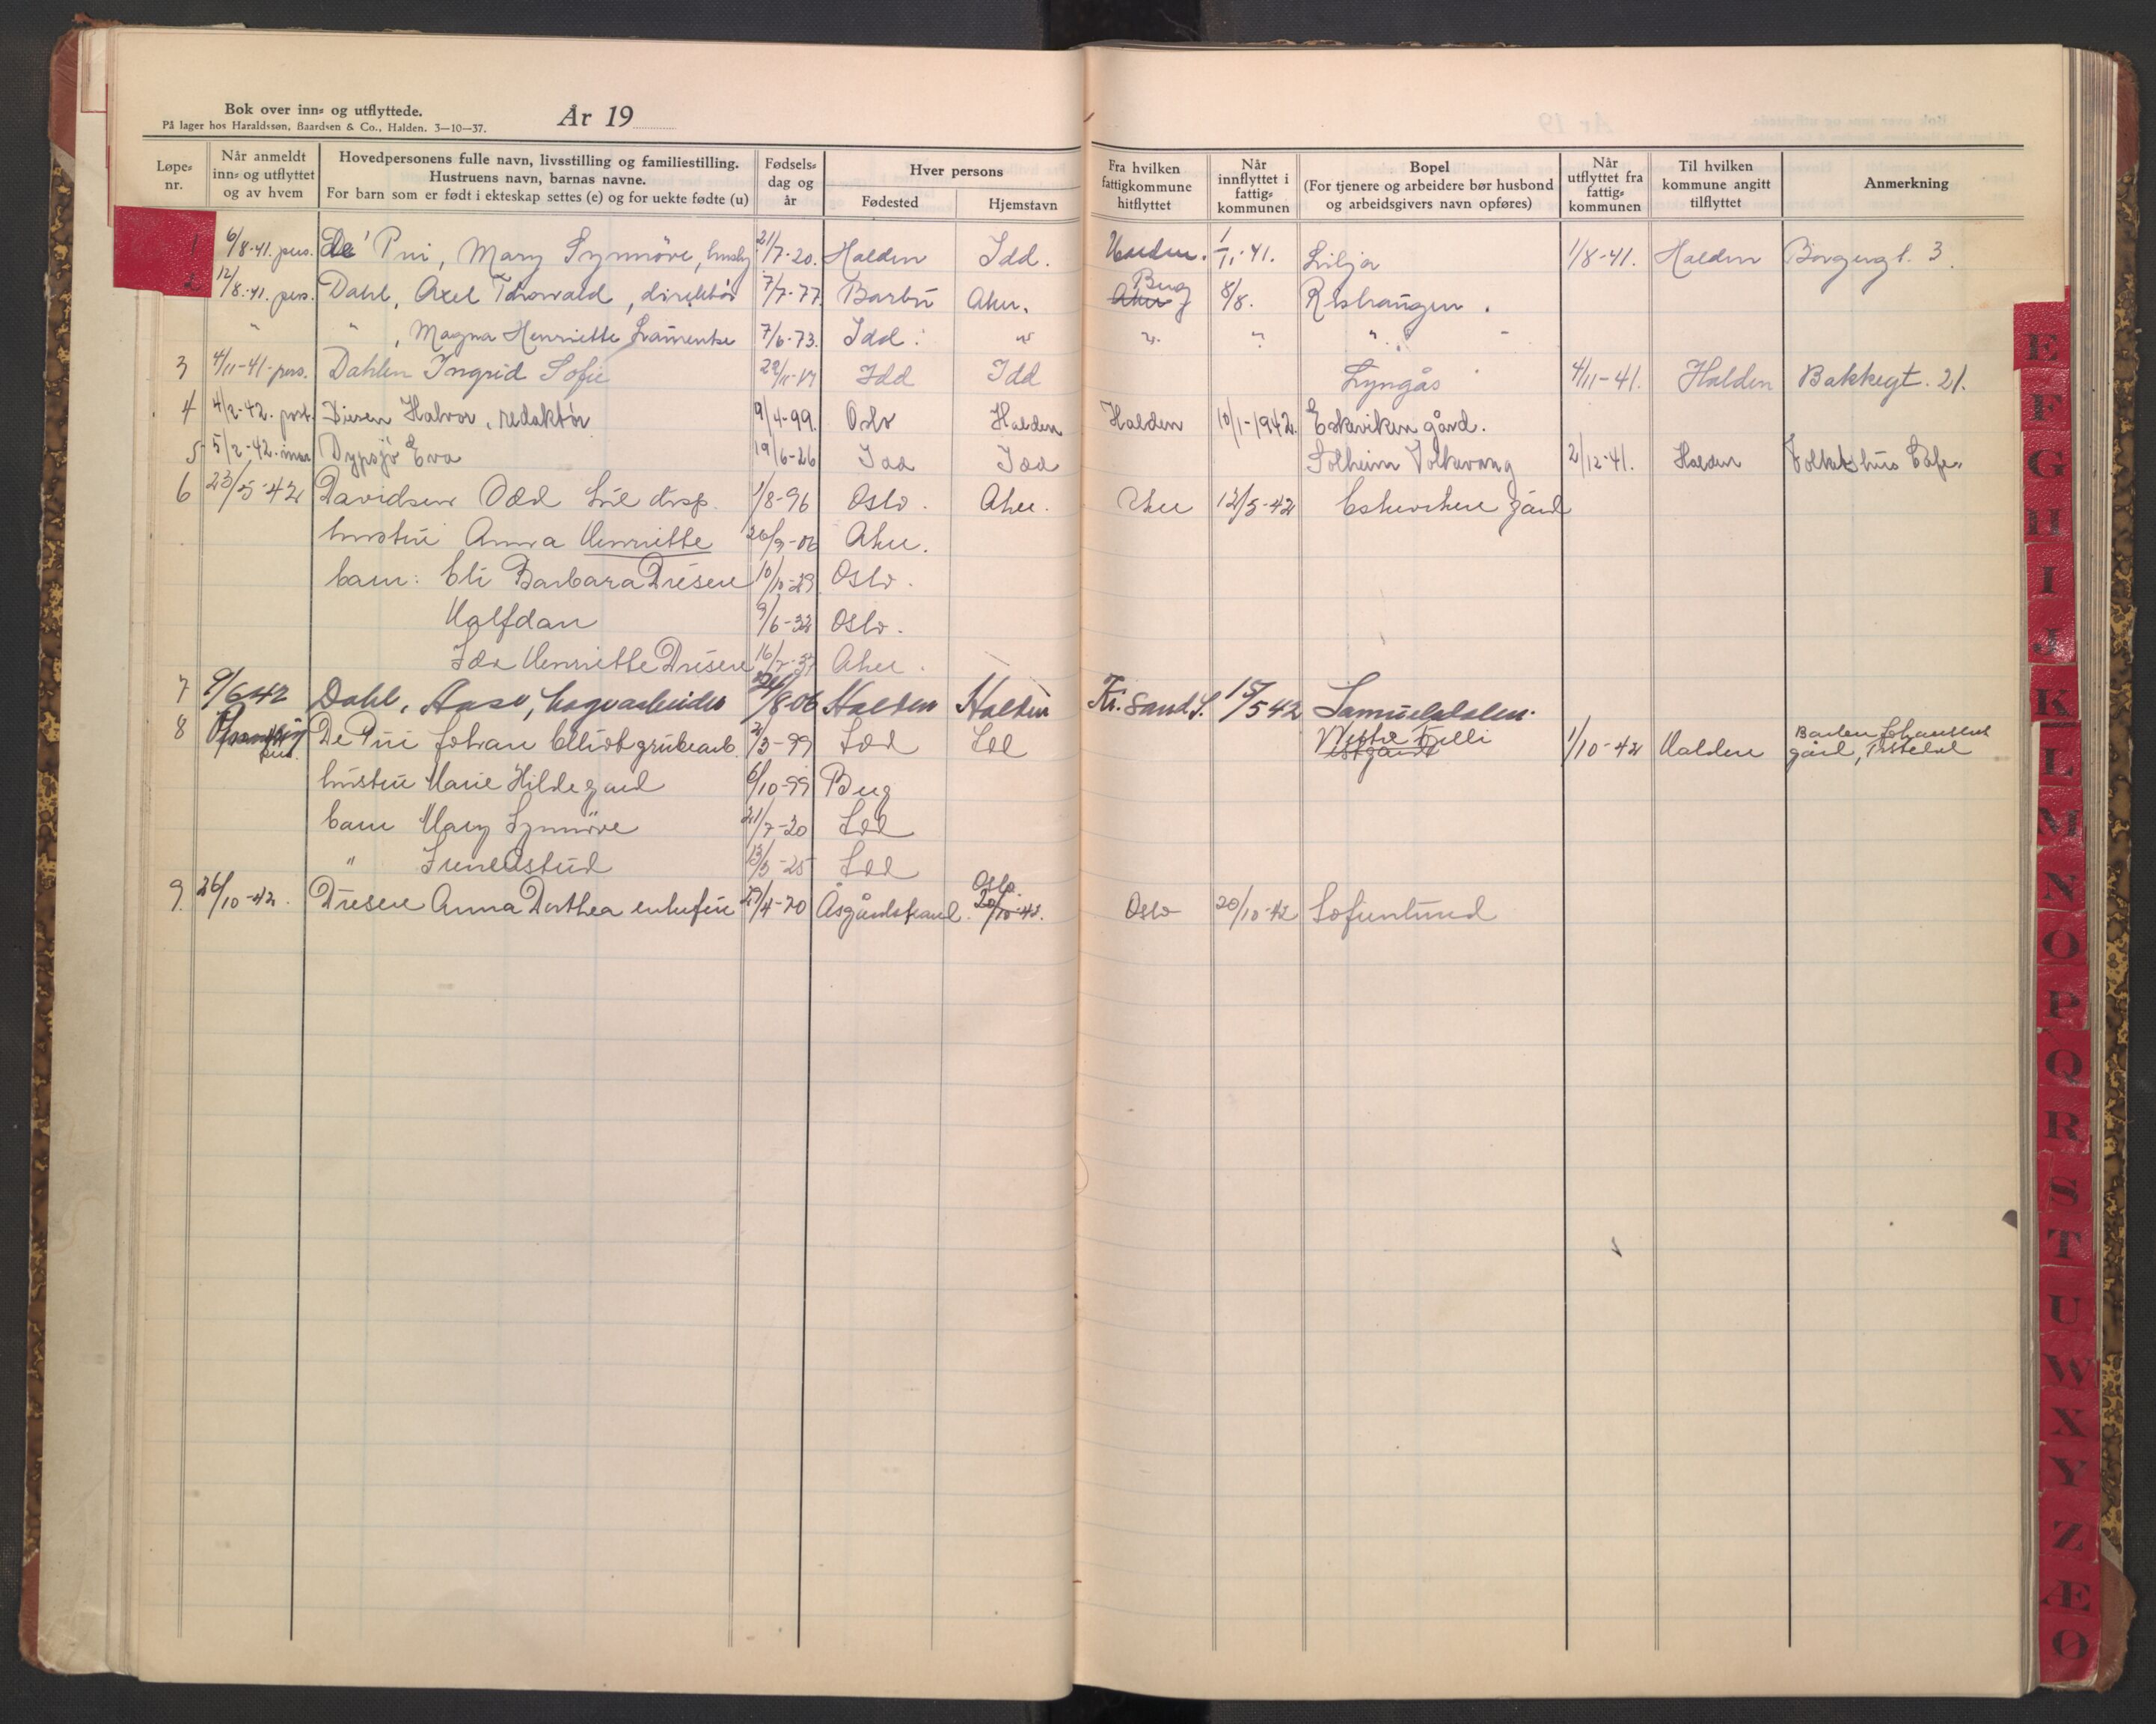 Bok over inn- og utflyttede.
På lager hos Haraldssøn, Baardsen & Co., Halden. 3—10—37.
År 19
Løpe-nr. Når anmeldt inn- og utflyttet og av hvem Hovedpersonens fulle navn, livsstilling og familiestilling. Hustruens navn, barnas navne. For barn som er født i ekteskap settes (e) og for uekte fødte (u) Fødsels-dag og år Hver persons Fødested Hjemstavn Fra hvilken fattigkommune hitflyttet Når innflyttet i fattig-kommunen Bopel (For tjenere og arbeidere bør husbond og arbeidsgivers navn opføres) Når utflyttet fra fattig-kommunen Til hvilken kommune angitt tilflyttet Anmerkning
1 6/8-41. pers. De Pui, Mary Synnöve, 21/7-20. Halden Idd. Halden. 1/11-41. Lilja 1/8-41. Halden Borgergt. 3.
2 12/8-41. pers. Dahl, Axel Thorvald, direktör 7/7-77 Barbu Aker. Aker Berg 8/8. Ristrangen.
" " , Magna Henriette 7/6-73. Idd. " " " "
3 4/11-41-pers. Dahlen Ingrid Sofie Idd Idd Lyngås 4/11-41. Halden Bakkegt. 21.
4 4/2-42. post. Diesen Halvor, redaktör 9/4-99. Oslo Halden Halden 10/1-1942. Eskeviken gård.
5 5/2-42. Dypsjö Eva 19/6-26 Idd Idd Solheim Folkevang 2/12-41. Halden Folketshus Cafe.
6 23/5-42 Davidsen Odd disp. 1/8-96 Oslo. Aker. Aker 12/5-42 Eskeviken gård
hustru Anna Henriette 26/9-06 Aker.
barn: Eli Barbara Diesen 10/10-29 Oslo.
Halfdan 9/6-32 Oslo.
Ida Henriette Diesen Aker.
7 9/6 42 Dahl, Aase, hagearbeider /8-06 Halden Halden Kr. sand S. 15/5 42 Samueldalen.
8 De Pui Johan Elliot grubearb. 2/3-99 Idd Idd Vestgård Vestre Fjelli 1/10-42 Halden Johansens gård, Tistedal
hustru Marie Hildegard 6/10-99 Berg
barn Mary Synnöve 21/7-20 Idd
" Irene Astrid 13/3-25 Idd
9. 26/10-42. Diesen Anna Dorthea enkefru /4-70 Åsgårdstrand. Oslo. 20/10-42. Oslo 20/10-42 Sofienlund
E
F
G
H
I
J
K
L
M
N
O
P
Q
R
S
T
U
W
X
Y
Z
Æ
Ø